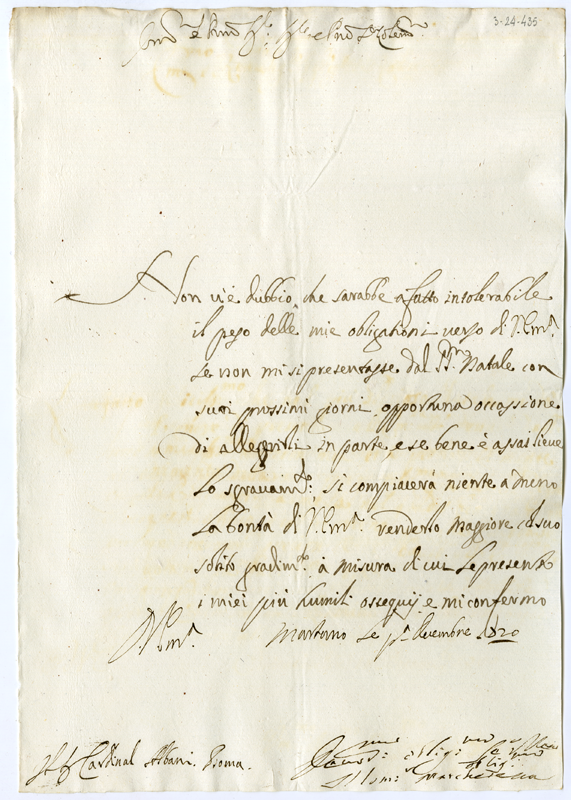 3-24-435
Em.º e Rmo Sr. Sr. e Pron. Colmo.
Non v'è dubbio, che sarabbe afatto intolerabile
il peso delle mie obligationi verso di V. Em.ª
se non mi si presentasse dal SS.mo Natale con
suoi prossimi giorni opportuna occassione
di allegirli in parte, e se bene è assai lieue
lo sgrauam.to: si compiacerà niente a meno
la bontà di V. Em.ª renderlo maggiore col suo
solito gradim.to à misura di cui le presento
i miei più humili ossequij e mi confermo
V. Em.ª Martano le p.º Xcembre 1720
Sr. Cardinal Albani. Roma.